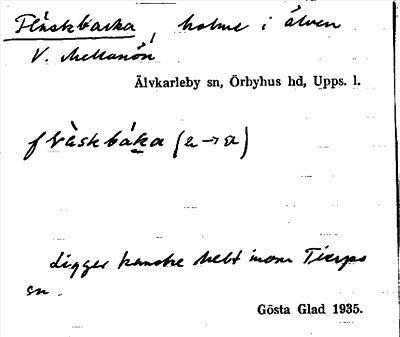 Fläskbacka, holme i älven
V. Mellanön
Älvkarleby sn, Örbyhus hd, Upps. l.
flàskbáka (a→a)
ligger kanske helt inom Tierps
sn.
Gösta Glad 1935.